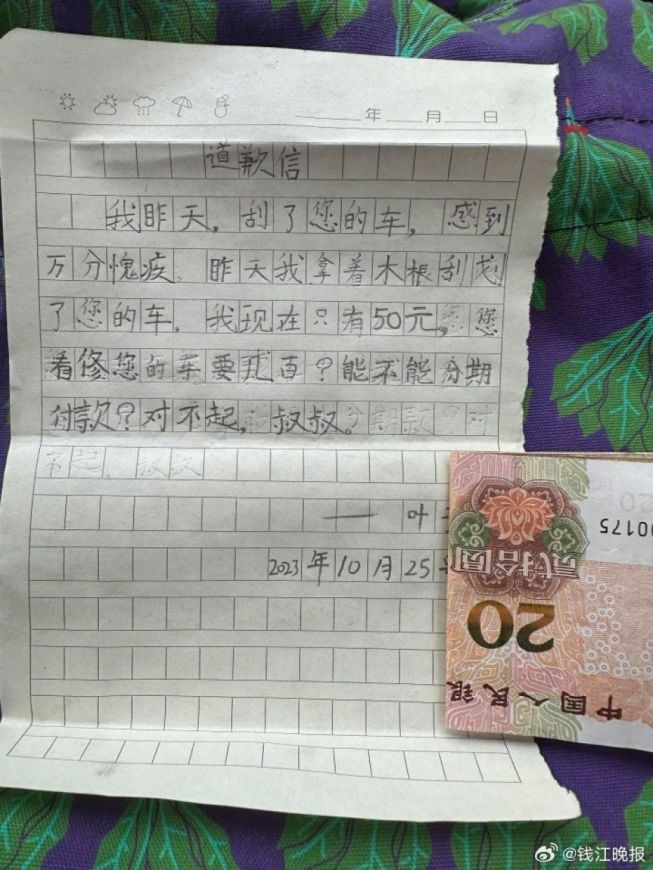 年 月 日
道歉信
我昨天,刮了您的车,感到
万分愧疫.昨天我拿着木根刮划
了您的车,我现在只有50元,您
看修您的车要几百?能不能分期
付款?对不起,叔叔。
不起,叔叔
— 叶
2023年10月25
00175
贰拾圆
20
中国人民银
@钱江晚报